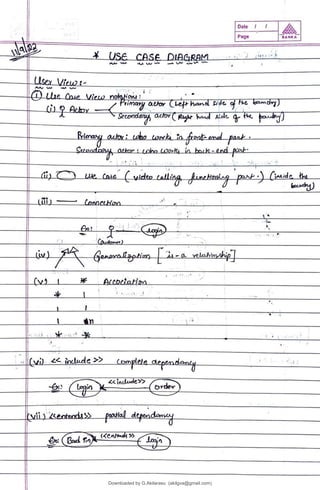 Date / /
Page
SANKA
11/9/22
* USE CASE DIAGRAM
User View :-
(i) Use Case View notations :
(i) Actor
Primary actor (Left hand side of the boundry)
Secondary actor (Right hand side of the boundry)
Primary actor : who works in front-end part.
Secondary actor : who works in back-end part
(ii) Use Case ( video calling functionality part.) (inside the boundry)
(iii) Connection
Ex: Login
(Customer)
(iv) Generalization [is-a relationship]
(v) 1 * Association
* 1
1 1
1 n
* *
(vi) << include >> Complete dependancy
Ex: Login <<include>> order
(vii) <<extends>> partial dependancy
Ex: <<extends>> Login
Downloaded by G.Akilarasu (akilgva@gmail.com)